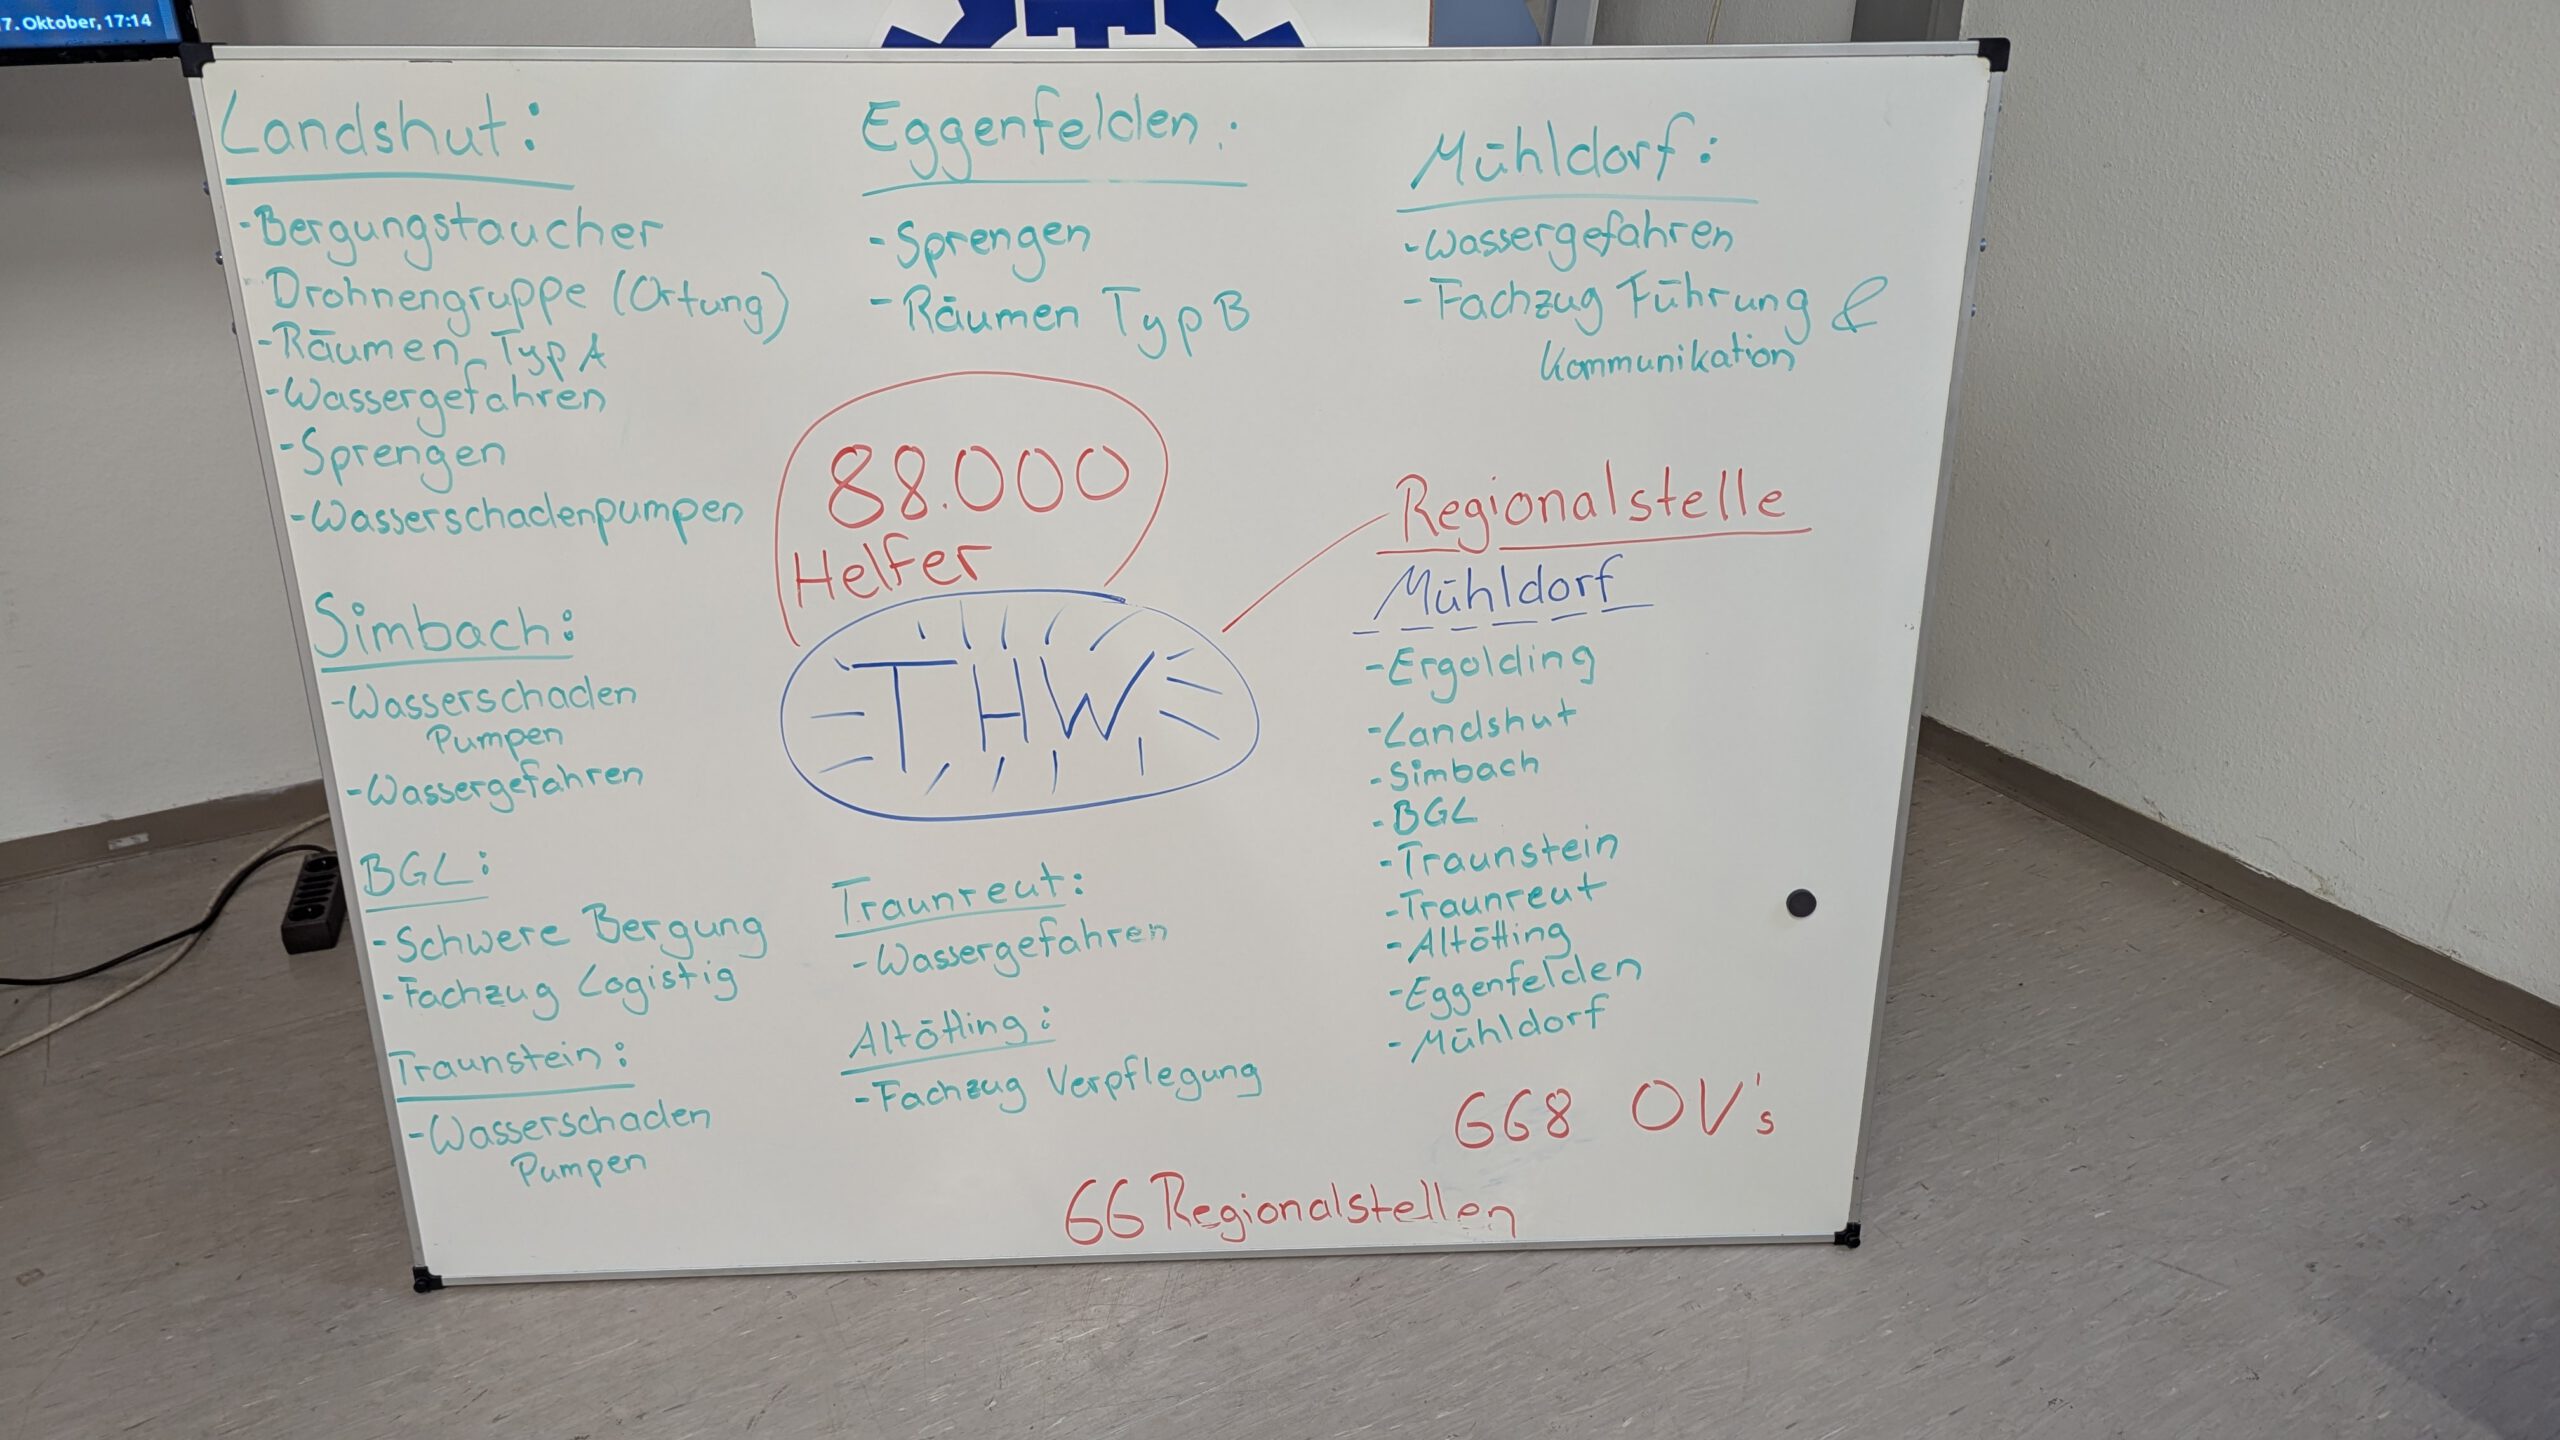 7. Oktober, 17:14
Landshut:
-Bergungstaucher
Drohnengruppe (Ortung)
-Räumen Typ A
-Wassergefahren
-Sprengen
-Wasserschadenpumpen
Simbach:
-Wasserschaden
Pumpen
-Wassergefahren
BGL:
-Schwere Bergung
-Fachzug Logistig
Traunstein:
-Wasserschaden
Pumpen
Eggenfelden:
-Sprengen
-Räumen Typ B
88.000
Helfer
THW
Traunreut:
-Wassergefahren
Altötting:
-Fachzug Verpflegung
Mühldorf:
-Wassergefahren
-Fachzug Führung &
Kommunikation
Regionalstelle
Mühldorf
-Ergolding
-Landshut
-Simbach
-BGL
-Traunstein
-Traunreut
-Altötting
-Eggenfelden
-Mühldorf
668 OV's
66 Regionalstellen